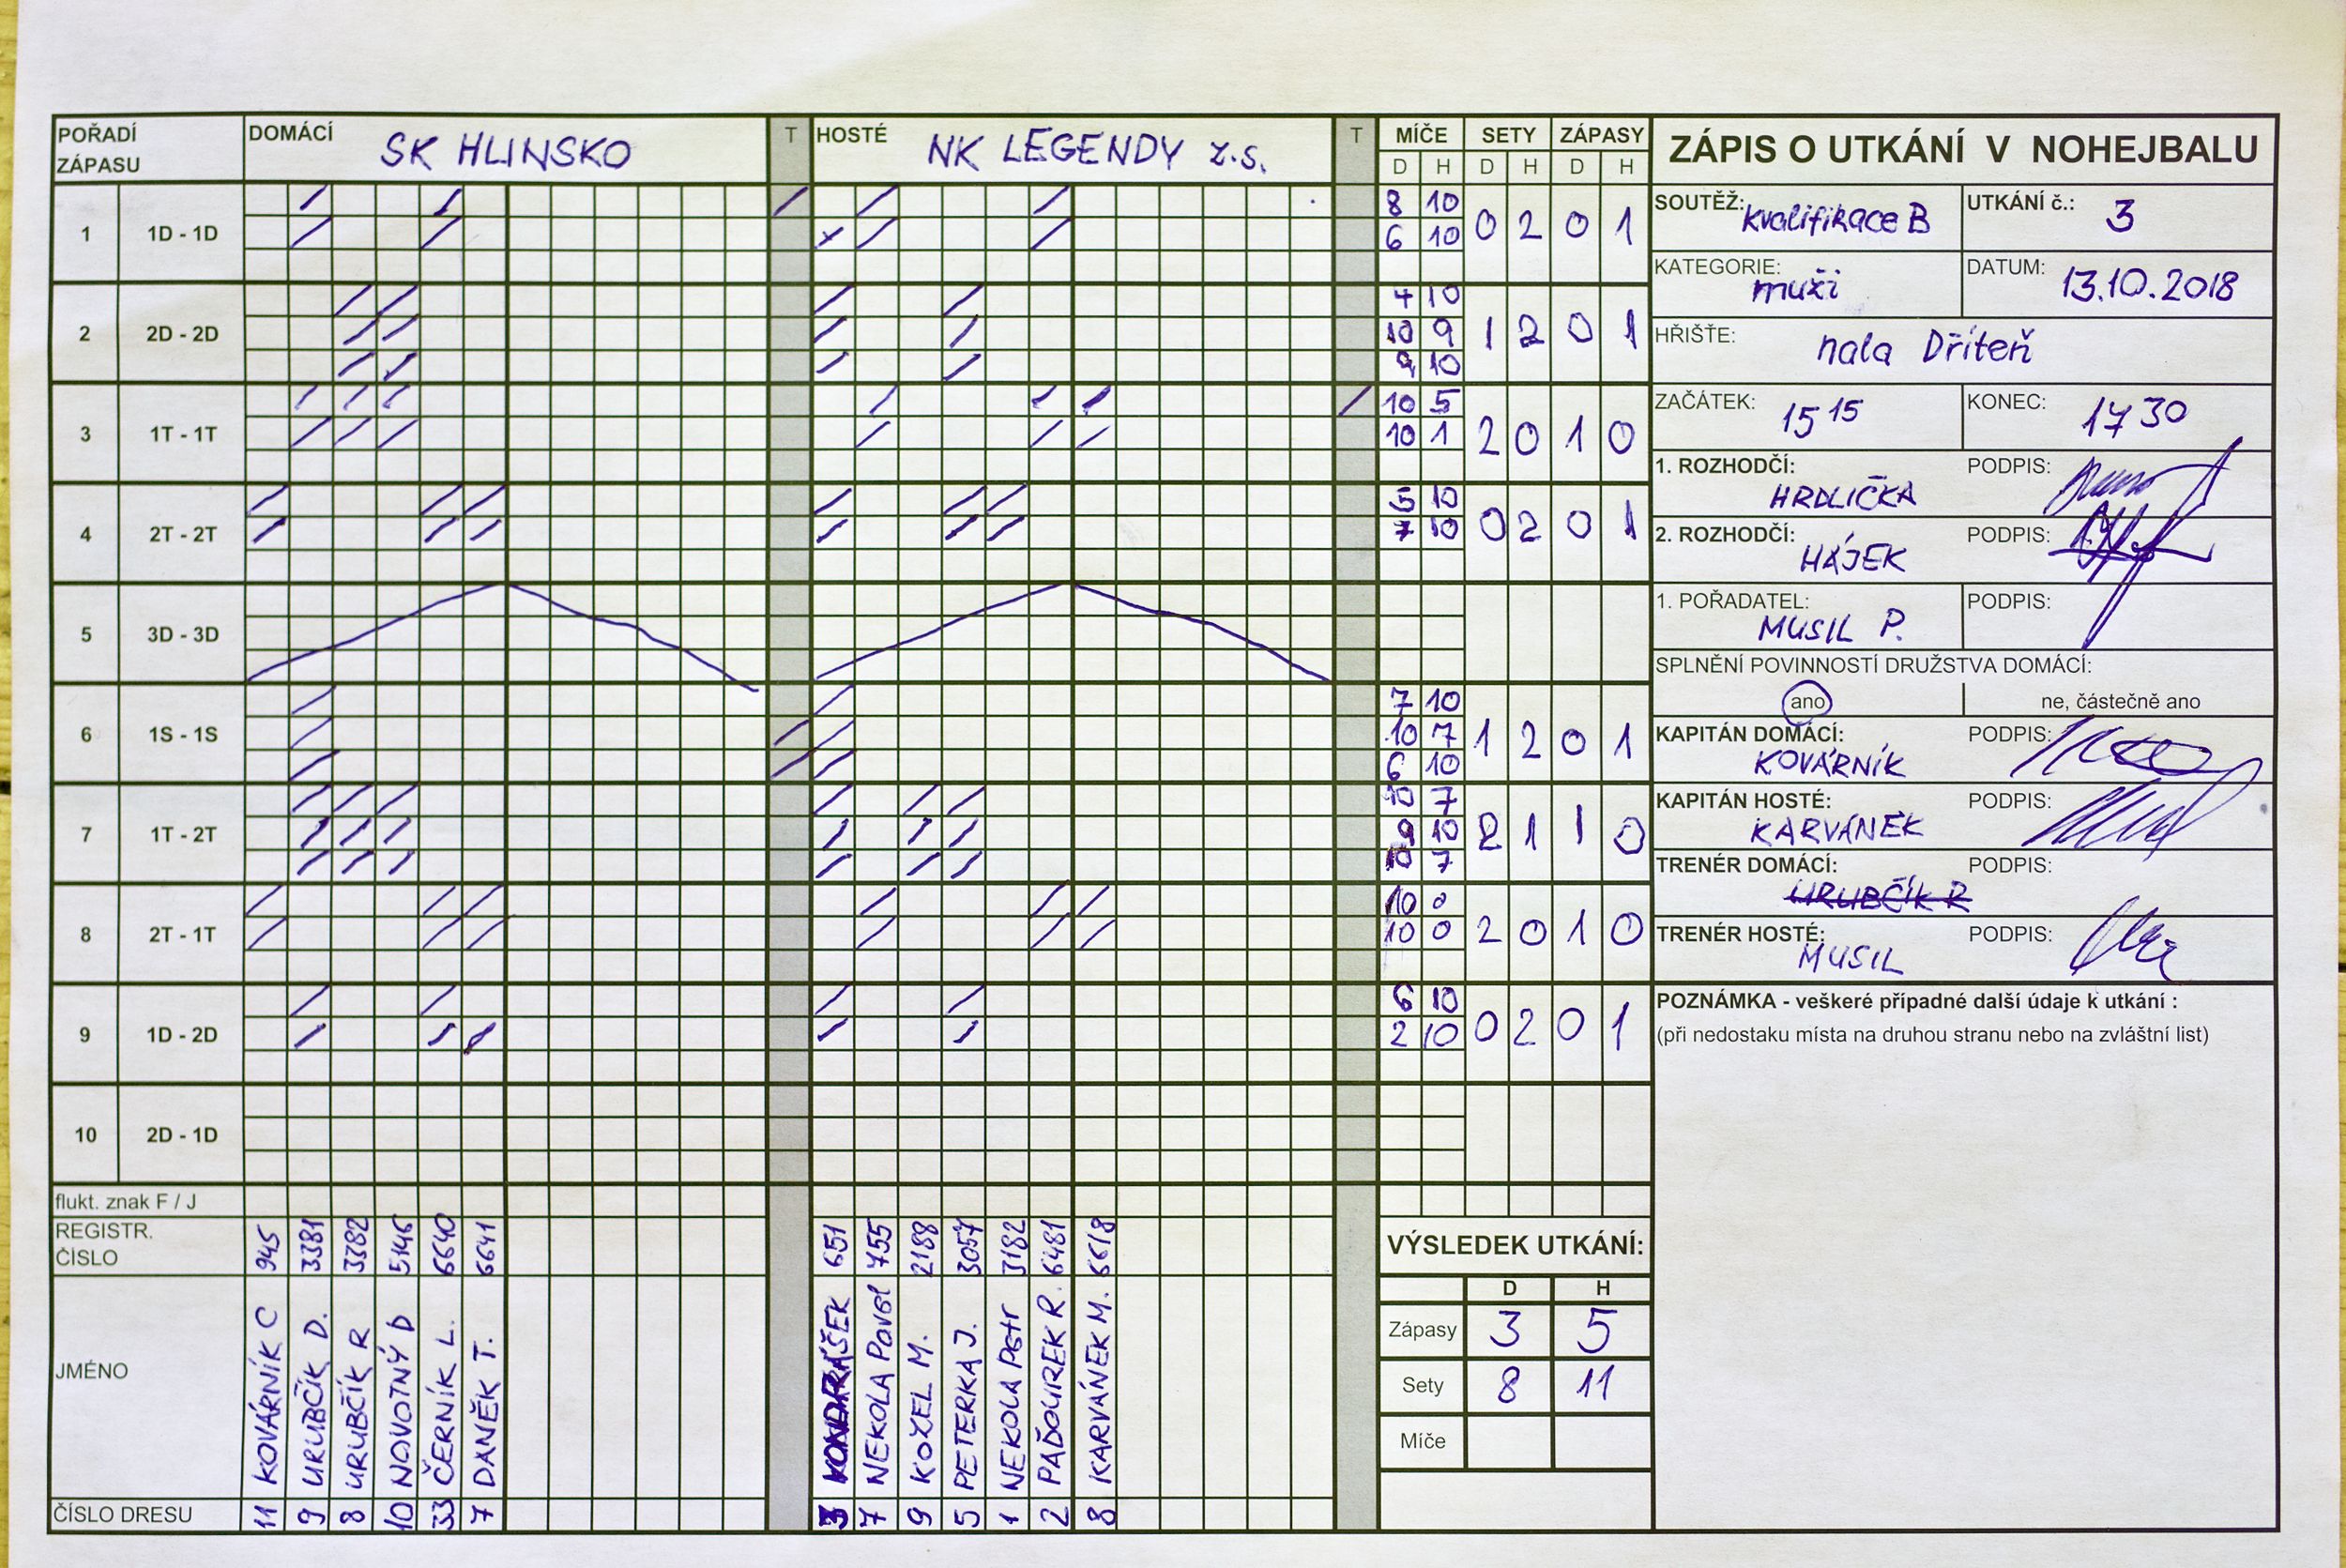 POŘADÍ ZÁPASU
DOMÁCÍ SK HLINSKO
T
HOSTÉ NK LEGENDY z.s.
T
MÍČE SETY ZÁPASY
D H D H D H
1 1D - 1D
8 10
6 10
0 2 0 1
2 2D - 2D
4 10
10 9
9 10
1 2 0 1
3 1T - 1T
10 5
10 1
2 0 1 0
4 2T - 2T
5 10
7 10
0 2 0 1
5 3D - 3D
6 1S - 1S
7 10
10 7
6 10
1 2 0 1
7 1T - 2T
10 7
9 10
10 7
2 1 1 0
8 2T - 1T
10 0
10 0
2 0 1 0
9 1D - 2D
6 10
2 10
0 2 0 1
10 2D - 1D
flukt. znak F / J
REGISTR. ČÍSLO
945 3381 3382 5146 6640 6641
651 755 2188 3057 3182 6481 6618
JMÉNO
KOVÁRNÍK C
URUBČÍK D.
URUBČÍK R
NOVOTNÝ D
ČERNÍK L.
DANĚK T.
NEKOLA Pavel
KOZEL M.
PETERKA J.
NEKOLA Petr
PAĎOUREK R.
KARVÁNEK M.
ČÍSLO DRESU
11 9 8 10 33 7
3 7 9 5 1 2 8
VÝSLEDEK UTKÁNÍ:
D H
Zápasy 3 5
Sety 8 11
Míče
ZÁPIS O UTKÁNÍ V NOHEJBALU
SOUTĚŽ: kvalifikace B
UTKÁNÍ č.: 3
KATEGORIE: muži
DATUM: 13.10.2018
HŘIŠTĚ: hala Dříteň
ZAČÁTEK: 15 15
KONEC: 17 30
1. ROZHODČÍ: HRDLIČKA PODPIS:
2. ROZHODČÍ: HÁJEK PODPIS:
1. POŘADATEL: MUSIL P. PODPIS:
SPLNĚNÍ POVINNOSTÍ DRUŽSTVA DOMÁCÍ:
ano ne, částečně ano
KAPITÁN DOMÁCÍ: KOVÁRNÍK PODPIS:
KAPITÁN HOSTÉ: KARVÁNEK PODPIS:
TRENÉR DOMÁCÍ: URUBČÍK R PODPIS:
TRENÉR HOSTÉ: MUSIL PODPIS:
POZNÁMKA - veškeré případné další údaje k utkání :
(při nedostaku místa na druhou stranu nebo na zvláštní list)